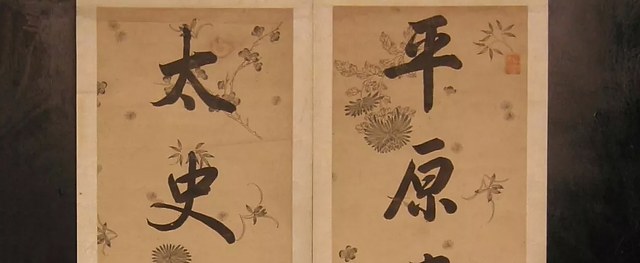 平原
太史